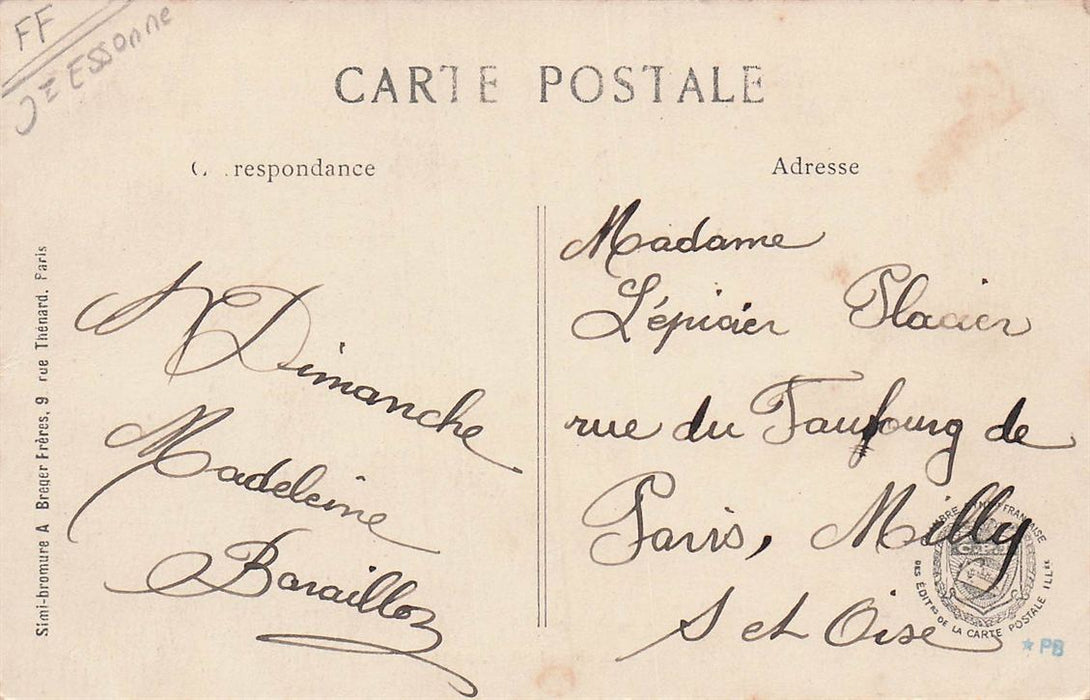 FF
CARTE POSTALE
Correspondance
Adresse
Simi-bromure A Breger Frères, 9 rue Thénard. Paris
Dimanche
Madeleine
Baraillon
Madame
L'épicier Placier
rue du Faufourg de
Paris, Milly
S et Oise
CHAMBRE SYND. FRANÇAISE
DES ÉDITRS DE LA CARTE POSTALE ILLÉE
PB